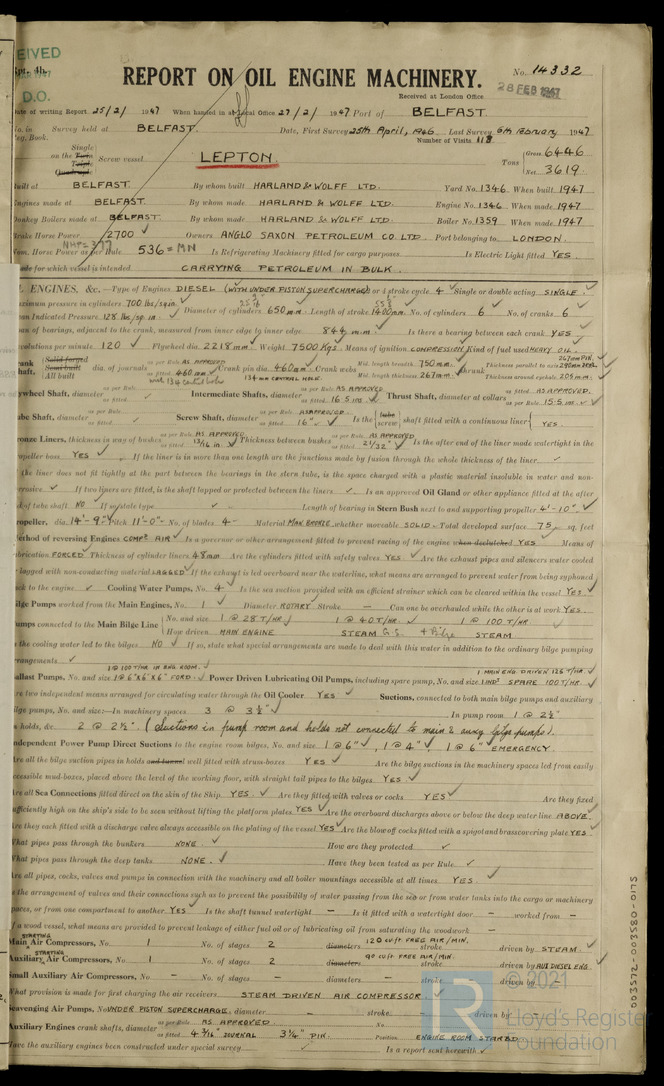 EIVED
D.O.
REPORT ON OIL ENGINE MACHINERY.
No. 14332
28 FEB 1947
Received at London Office
Date of writing Report 25/2/1947 When handed in at Local Office 27/2/1947 Port of BELFAST.
No. in Survey held at BELFAST. Date, First Survey 25th April, 1946 Last Survey 6th February 1947
Reg. Book. Number of Visits 118
Single
on the Twin Screw vessel LEPTON.
Triple
Quadruple
Tons Gross 6446
Net 3619.
Built at BELFAST By whom built HARLAND & WOLFF LTD. Yard No. 1346 When built 1947
Engines made at BELFAST. By whom made HARLAND & WOLFF LTD. Engine No. 1346 When made 1947
Donkey Boilers made at BELFAST By whom made HARLAND & WOLFF LTD. Boiler No. 1359 When made 1947
Brake Horse Power 2700 Owners ANGLO SAXON PETROLEUM CO. LTD. Port belonging to LONDON.
Nom. Horse Power as per Rule 536 = MN Is Refrigerating Machinery fitted for cargo purposes Is Electric Light fitted YES
Trade for which vessel is intended CARRYING PETROLEUM IN BULK.
ENGINES, &c.—Type of Engines DIESEL (WITH UNDER PISTON SUPERCHARGE) 2 or 4 stroke cycle 4 Single or double acting SINGLE.
Maximum pressure in cylinders 700 lbs/sq in. Diameter of cylinders 650 m.m. Length of stroke 1400 mm. No. of cylinders 6 No. of cranks 6
Mean Indicated Pressure 128 lbs/sq in.
Span of bearings, adjacent to the crank, measured from inner edge to inner edge 844 m.m. Is there a bearing between each crank YES
Revolutions per minute 120 Flywheel dia. 2218 mm. Weight 7500 Kgs. Means of ignition COMPRESSION Kind of fuel used HEAVY OIL.
Crank Shaft, Solid forged Semi built All built dia. of journals as per Rule AS APPROVED as fitted 460 mm. Crank pin dia. 460 mm. Crank webs Mid. length breadth 750 mm. Mid. length thickness 267 mm. Thickness parallel to axis Thickness around eyehole 205 mm.
with 134 central holes 134 mm CENTRAL HOLE.
Flywheel Shaft, diameter as per Rule as fitted Intermediate Shafts, diameter as per Rule AS APPROVED as fitted Thrust Shaft, diameter at collars as per Rule AS APPROVED. as fitted
Tube Shaft, diameter as per Rule as fitted Screw Shaft, diameter as per Rule AS APPROVED as fitted 16" Is the tube screw shaft fitted with a continuous liner YES.
Bronze Liners, thickness in way of bushes as per Rule AS APPROVED as fitted 13/16 in. Thickness between bushes as per Rule AS APPROVED as fitted 21/32" Is the after end of the liner made watertight in the
propeller boss YES If the liner is in more than one length are the junctions made by fusion through the whole thickness of the liner
If the liner does not fit tightly at the part between the bearings in the stern tube, is the space charged with a plastic material insoluble in water and non-
corrosive If two liners are fitted, is the shaft lapped or protected between the liners Is an approved Oil Gland or other appliance fitted at the after
end of tube shaft NO If so, state type Length of bearing in Stern Bush next to and supporting propeller 4'-10"
Propeller, dia. 14'-9" Pitch 11'-0" No. of blades 4 Material MAN BRONZE whether moveable SOLID Total developed surface 75 sq. feet
Method of reversing Engines COMPD AIR Is a governor or other arrangement fitted to prevent racing of the engine when declutched YES Means of
lubrication FORCED Thickness of cylinder liners 48 mm Are the cylinders fitted with safety valves YES Are the exhaust pipes and silencers water cooled
or lagged with non-conducting material LAGGED If the exhaust is led overboard near the waterline, what means are arranged to prevent water from being syphoned
back to the engine Cooling Water Pumps, No. 4 Is the sea suction provided with an efficient strainer which can be cleared within the vessel YES
Bilge Pumps worked from the Main Engines, No. 1 Diameter ROTARY Stroke — Can one be overhauled while the other is at work YES.
Pumps connected to the Main Bilge Line No. and size 1 @ 28 T/HR 1 @ 40 T/HR 1 @ 100 T/HR
How driven MAIN ENGINE STEAM G.S. + Bilge STEAM
Is the cooling water led to the bilges NO If so, state what special arrangements are made to deal with this water in addition to the ordinary bilge pumping
arrangements
1 @ 100 T/HR IN ENG. ROOM. 1 MAIN ENG. DRIVEN 125 T/HR.
Ballast Pumps, No. and size 1 @ 6"x6"x6" FORD. Power Driven Lubricating Oil Pumps, including spare pump, No. and size 1 INDT SPARE 100 T/HR.
Are two independent means arranged for circulating water through the Oil Cooler YES Suctions, connected to both main bilge pumps and auxiliary
bilge pumps, No. and size:—In machinery spaces 3 @ 3½" In pump room 1 @ 2½"
In holds, &c. 2 @ 2½". (Suctions in pump room and holds not connected to main & auxy bilge pumps).
Independent Power Pump Direct Suctions to the engine room bilges, No. and size 1 @ 6", 1 @ 4", 1 @ 6" EMERGENCY.
Are all the bilge suction pipes in holds and tunnel well fitted with strum-boxes YES Are the bilge suctions in the machinery spaces led from easily
accessible mud-boxes, placed above the level of the working floor, with straight tail pipes to the bilges YES.
Are all Sea Connections fitted direct on the skin of the Ship YES. Are they fitted with valves or cocks YES Are they fixed
sufficiently high on the ship's side to be seen without lifting the platform plates YES Are the overboard discharges above or below the deep water line ABOVE.
Are they each fitted with a discharge valve always accessible on the plating of the vessel YES Are the blow off cocks fitted with a spigot and brass covering plate YES.
What pipes pass through the bunkers NONE. How are they protected
What pipes pass through the deep tanks NONE. Have they been tested as per Rule
Are all pipes, cocks, valves and pumps in connection with the machinery and all boiler mountings accessible at all times YES
Is the arrangement of valves and their connections such as to prevent the possibility of water passing from the sea or from water tanks into the cargo or machinery
spaces, or from one compartment to another YES Is the shaft tunnel watertight — Is it fitted with a watertight door — worked from —
If a wood vessel, what means are provided to prevent leakage of either fuel oil or of lubricating oil from saturating the woodwork —
STARTING
Main Air Compressors, No. 1 No. of stages 2 diameters 120 cu ft FREE AIR/MIN. stroke driven by STEAM.
STARTING
Auxiliary Air Compressors, No. 1 No. of stages 2 diameters 90 cu ft FREE AIR/MIN. stroke driven by AUX DIESEL ENG.
Small Auxiliary Air Compressors, No. — No. of stages — diameters — stroke driven by —
What provision is made for first charging the air receivers STEAM DRIVEN AIR COMPRESSOR.
Scavenging Air Pumps, No. UNDER PISTON SUPERCHARGE. diameter stroke driven by —
Auxiliary Engines crank shafts, diameter as per Rule AS APPROVED as fitted 4 3/16" JOURNAL 3¼" PIN. No. Position ENGINE ROOM STARBD
Have the auxiliary engines been constructed under special survey Is a report sent herewith
003572-003580-0175
© 2021
Lloyd's Register
Foundation